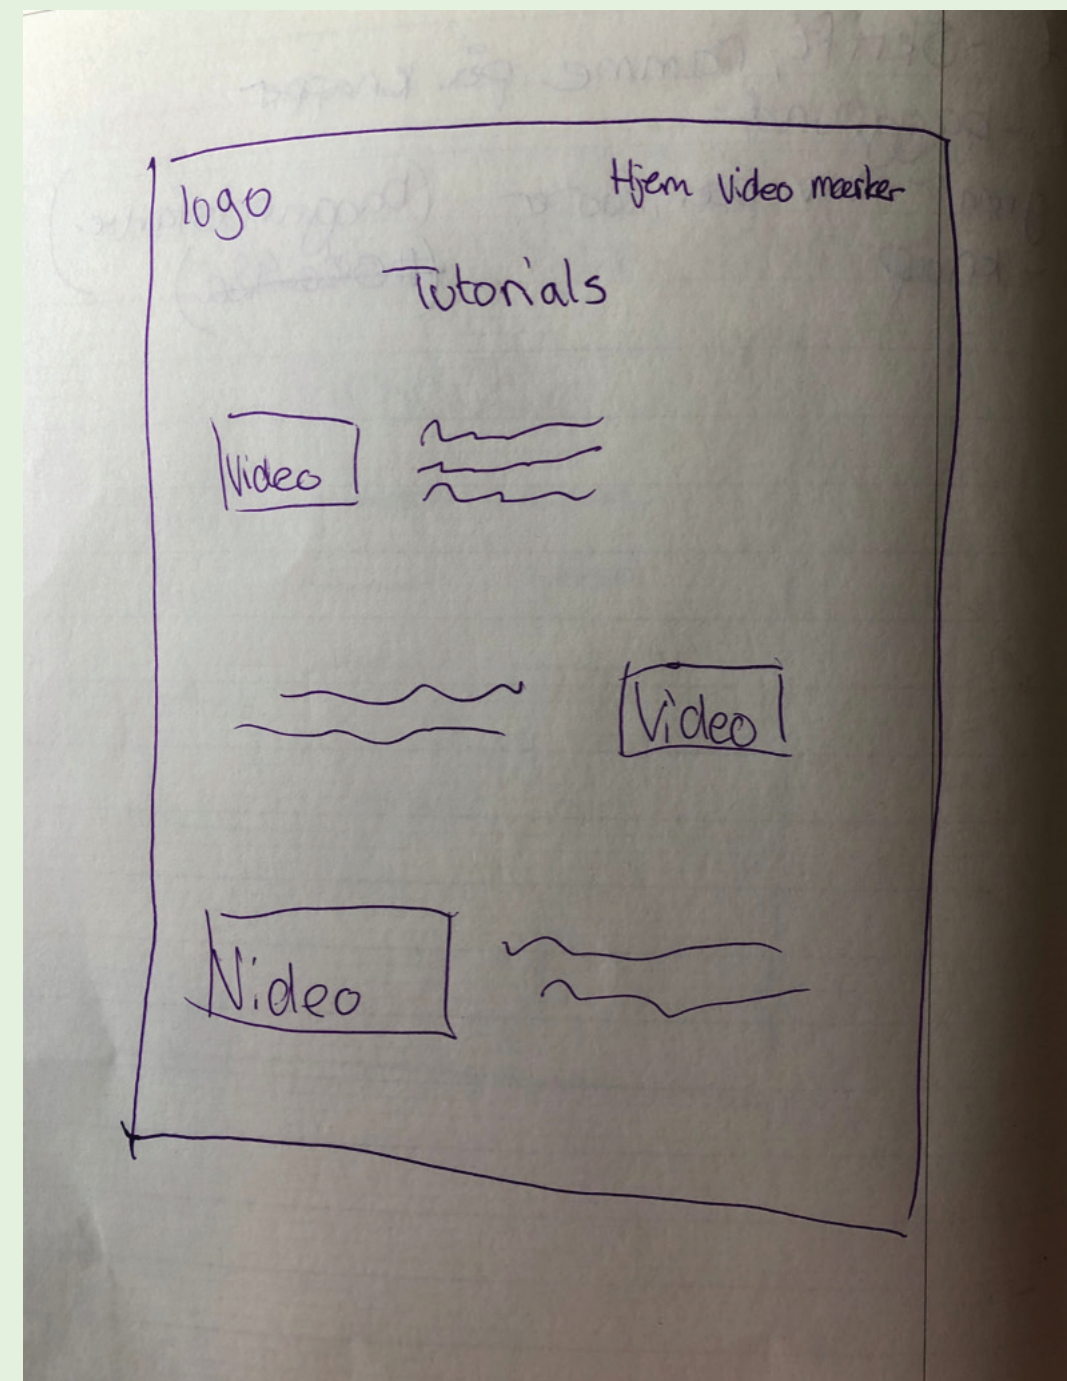 logo
Hjem Video mærker
Tutorials
Video
Video
Video